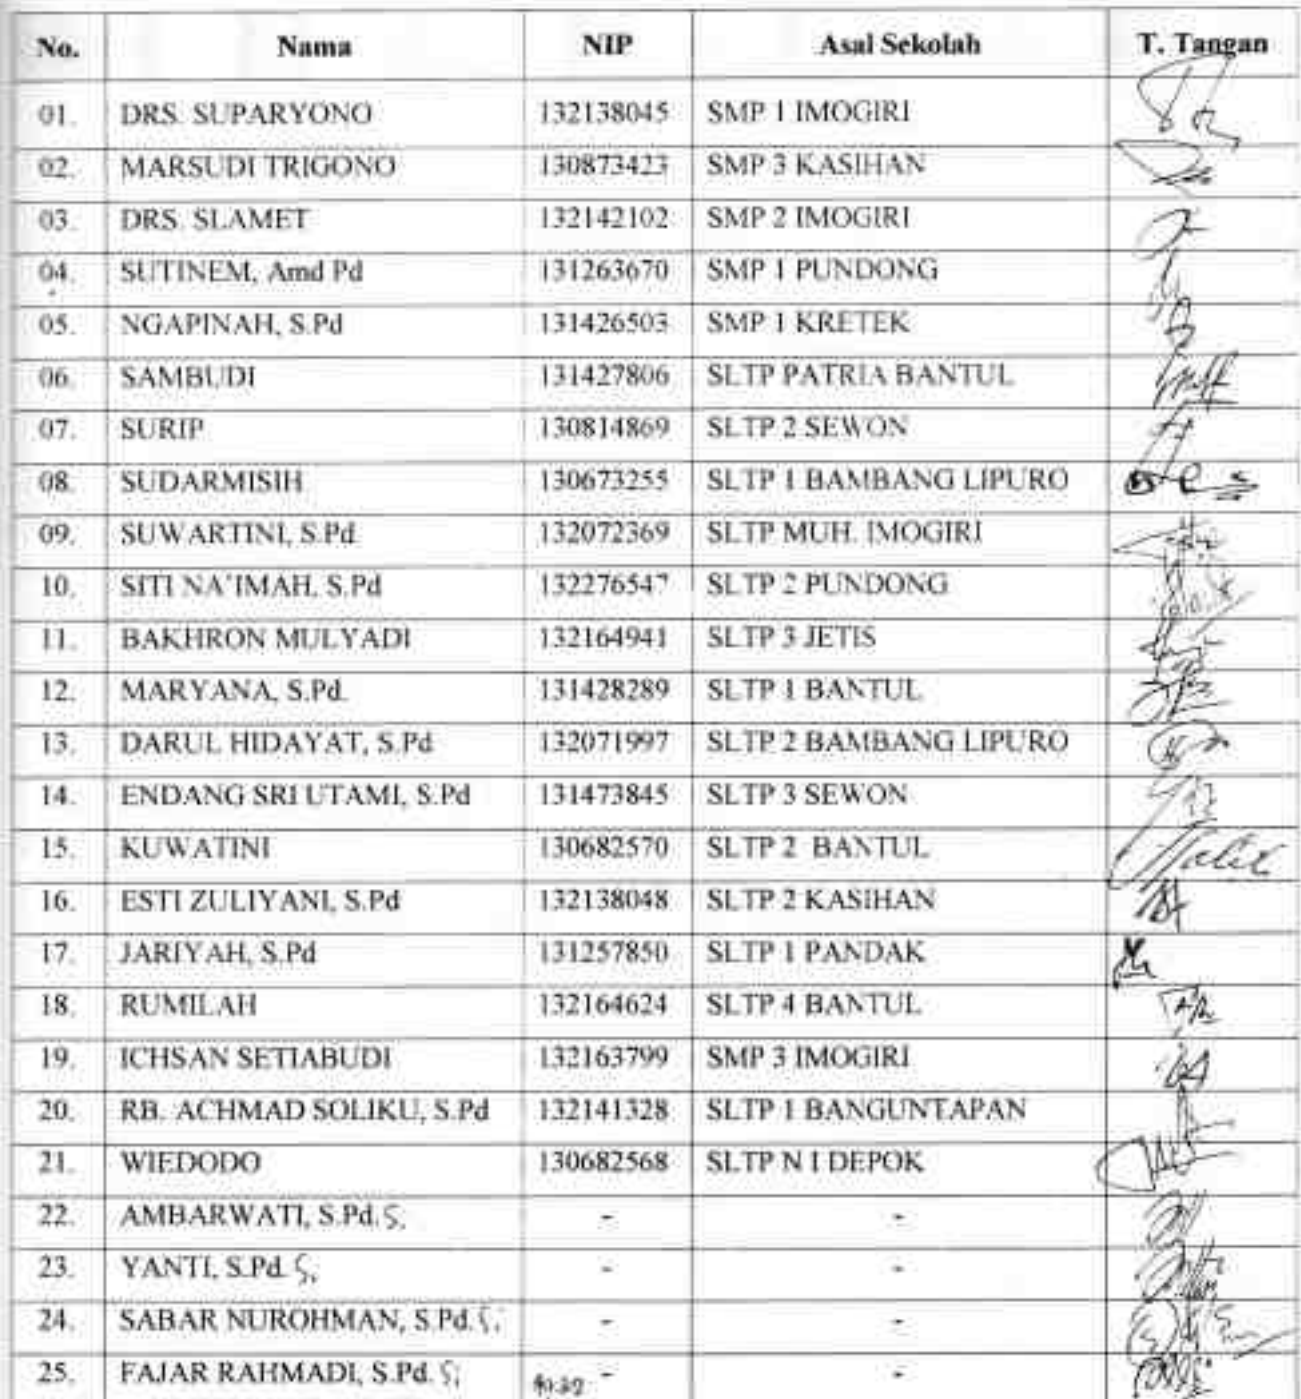 No. Nama NIP Asal Sekolah T. Tangan
01. DRS. SUPARYONO 132138045 SMP 1 IMOGIRI
02. MARSUDI TRIGONO 130873423 SMP 3 KASIHAN
03. DRS. SLAMET 132142102 SMP 2 IMOGIRI
04. SUTINEM, Amd Pd 131263670 SMP 1 PUNDONG
05. NGAPINAH, S.Pd 131426503 SMP 1 KRETEK
06. SAMBUDI 131427806 SLTP PATRIA BANTUL
07. SURIP 130814869 SLTP 2 SEWON
08. SUDARMISIH 130673255 SLTP 1 BAMBANG LIPURO
09. SUWARTINI, S.Pd 132072369 SLTP MUH. IMOGIRI
10. SITI NA'IMAH, S.Pd 132276547 SLTP 2 PUNDONG
11. BAKHRON MULYADI 132164941 SLTP 3 JETIS
12. MARYANA, S.Pd. 131428289 SLTP 1 BANTUL
13. DARUL HIDAYAT, S.Pd 132071997 SLTP 2 BAMBANG LIPURO
14. ENDANG SRI UTAMI, S.Pd 131473845 SLTP 3 SEWON
15. KUWATINI 130682570 SLTP 2 BANTUL
16. ESTI ZULIYANI, S.Pd 132138048 SLTP 2 KASIHAN
17. JARIYAH, S.Pd 131257850 SLTP 1 PANDAK
18. RUMILAH 132164624 SLTP 4 BANTUL
19. ICHSAN SETIABUDI 132163799 SMP 3 IMOGIRI
20. RB. ACHMAD SOLIKU, S.Pd 132141328 SLTP 1 BANGUNTAPAN
21. WIEDODO 130682568 SLTP N I DEPOK
22. AMBARWATI, S.Pd.S. - -
23. YANTI, S.Pd S. - -
24. SABAR NUROHMAN, S.Pd.S. - -
25. FAJAR RAHMADI, S.Pd. S. - -